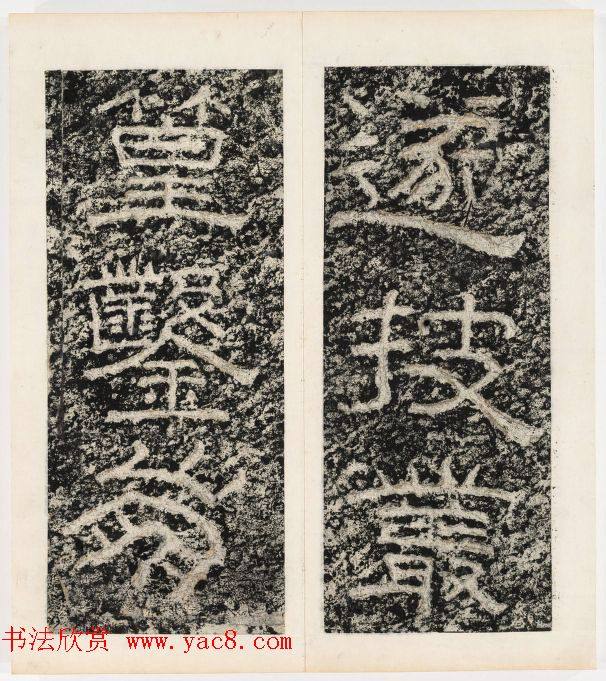 遂披叢
篁鑿
书法欣赏 www.yac8.com